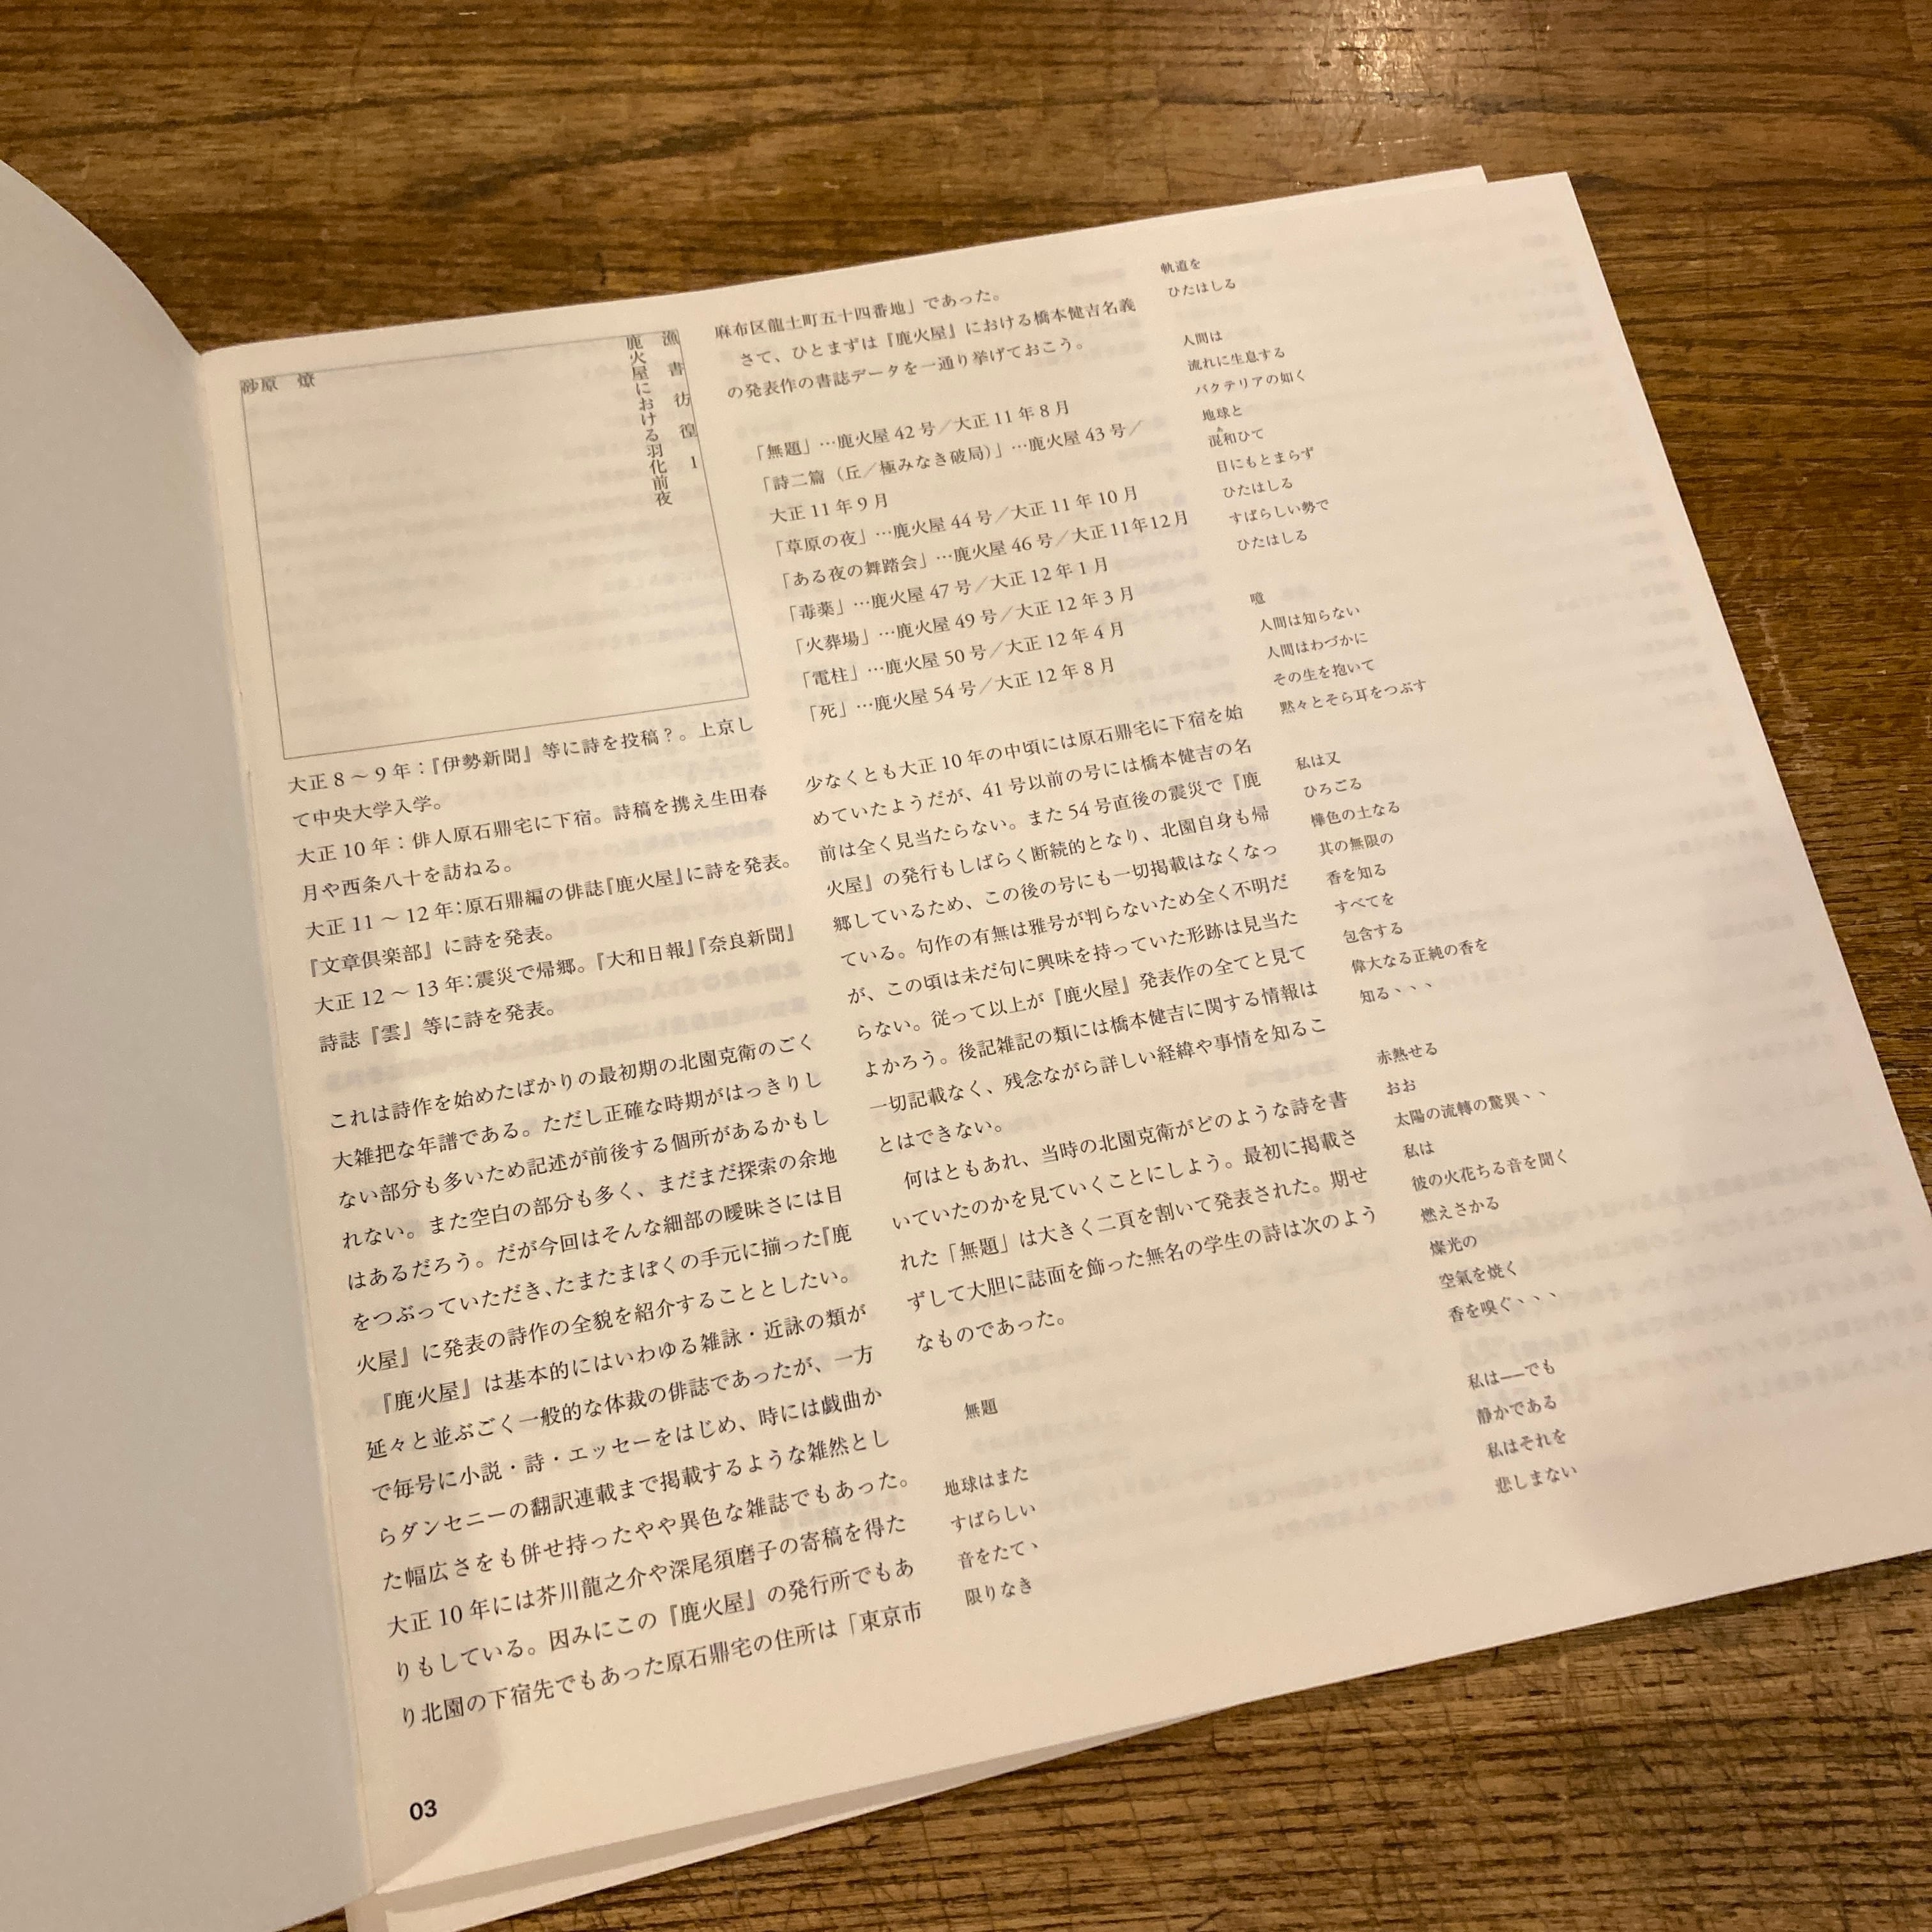 漁書彷徨 1
鹿火屋における羽化前夜
砂原 燎
大正 8 〜 9 年：『伊勢新聞』等に詩を投稿？。上京し
て中央大学入学。
大正 10 年：俳人原石鼎宅に下宿。詩稿を携え生田春
月や西条八十を訪ねる。
大正 11 〜 12 年：原石鼎編の俳誌『鹿火屋』に詩を発表。
『文章倶楽部』に詩を発表。
大正 12 〜 13 年：震災で帰郷。『大和日報』『奈良新聞』
詩誌『雲』等に詩を発表。
これは詩作を始めたばかりの最初期の北園克衛のごく
大雑把な年譜である。ただし正確な時期がはっきりし
ない部分も多いため記述が前後する個所があるかもし
れない。また空白の部分も多く、まだまだ探索の余地
はあるだろう。だが今回はそんな細部の曖昧さには目
をつぶっていただき、たまたまぼくの手元に揃った『鹿
火屋』に発表の詩作の全貌を紹介することとしたい。
『鹿火屋』は基本的にはいわゆる雑詠・近詠の類が
延々と並ぶごく一般的な体裁の俳誌であったが、一方
で毎号に小説・詩・エッセーをはじめ、時には戯曲か
らダンセニーの翻訳連載まで掲載するような雑然とし
た幅広さをも併せ持ったやや異色な雑誌でもあった。
大正 10 年には芥川龍之介や深尾須磨子の寄稿を得た
りもしている。因みにこの『鹿火屋』の発行所でもあ
り北園の下宿先でもあった原石鼎宅の住所は「東京市
麻布区龍土町五十四番地」であった。
さて、ひとまずは『鹿火屋』における橋本健吉名義
の発表作の書誌データを一通り挙げておこう。
「無題」…鹿火屋 42 号／大正 11 年 8 月
「詩二篇（丘／極みなき破局）」…鹿火屋 43 号／
大正 11 年 9 月
「草原の夜」…鹿火屋 44 号／大正 11 年 10 月
「ある夜の舞踏会」…鹿火屋 46 号／大正 11年12月
「毒薬」…鹿火屋 47 号／大正 12 年 1 月
「火葬場」…鹿火屋 49 号／大正 12 年 3 月
「電柱」…鹿火屋 50 号／大正 12 年 4 月
「死」…鹿火屋 54 号／大正 12 年 8 月
少なくとも大正 10 年の中頃には原石鼎宅に下宿を始
めていたようだが、41 号以前の号には橋本健吉の名
前は全く見当たらない。また 54 号直後の震災で『鹿
火屋』の発行もしばらく断続的となり、北園自身も帰
郷しているため、この後の号にも一切掲載はなくなっ
ている。句作の有無は雅号が判らないため全く不明だ
が、この頃は未だ句に興味を持っていた形跡は見当た
らない。従って以上が『鹿火屋』発表作の全てと見て
よかろう。後記雑記の類には橋本健吉に関する情報は
一切記載なく、残念ながら詳しい経緯や事情を知るこ
とはできない。
何はともあれ、当時の北園克衛がどのような詩を書
いていたのかを見ていくことにしよう。最初に掲載さ
れた「無題」は大きく二頁を割いて発表された。期せ
ずして大胆に誌面を飾った無名の学生の詩は次のよう
なものであった。
無題
地球はまた
すばらしい
音をたてヽ
限りなき
軌道を
ひたはしる
人間は
流れに生息する
バクテリアの如く
地球と
混和ひて
目にもとまらず
ひたはしる
すばらしい勢で
ひたはしる
噫
人間は知らない
人間はわづかに
その生を抱いて
黙々とそら耳をつぶす
私は又
ひろごる
樺色の土なる
其の無限の
香を知る
すべてを
包含する
偉大なる正純の香を
知る、、、
赤熱せる
おお
太陽の流轉の驚異、、
私は
彼の火花ちる音を聞く
燃えさかる
燦光の
空氣を焼く
香を嗅ぐ、、、
私は──でも
静かである
私はそれを
悲しまない
03